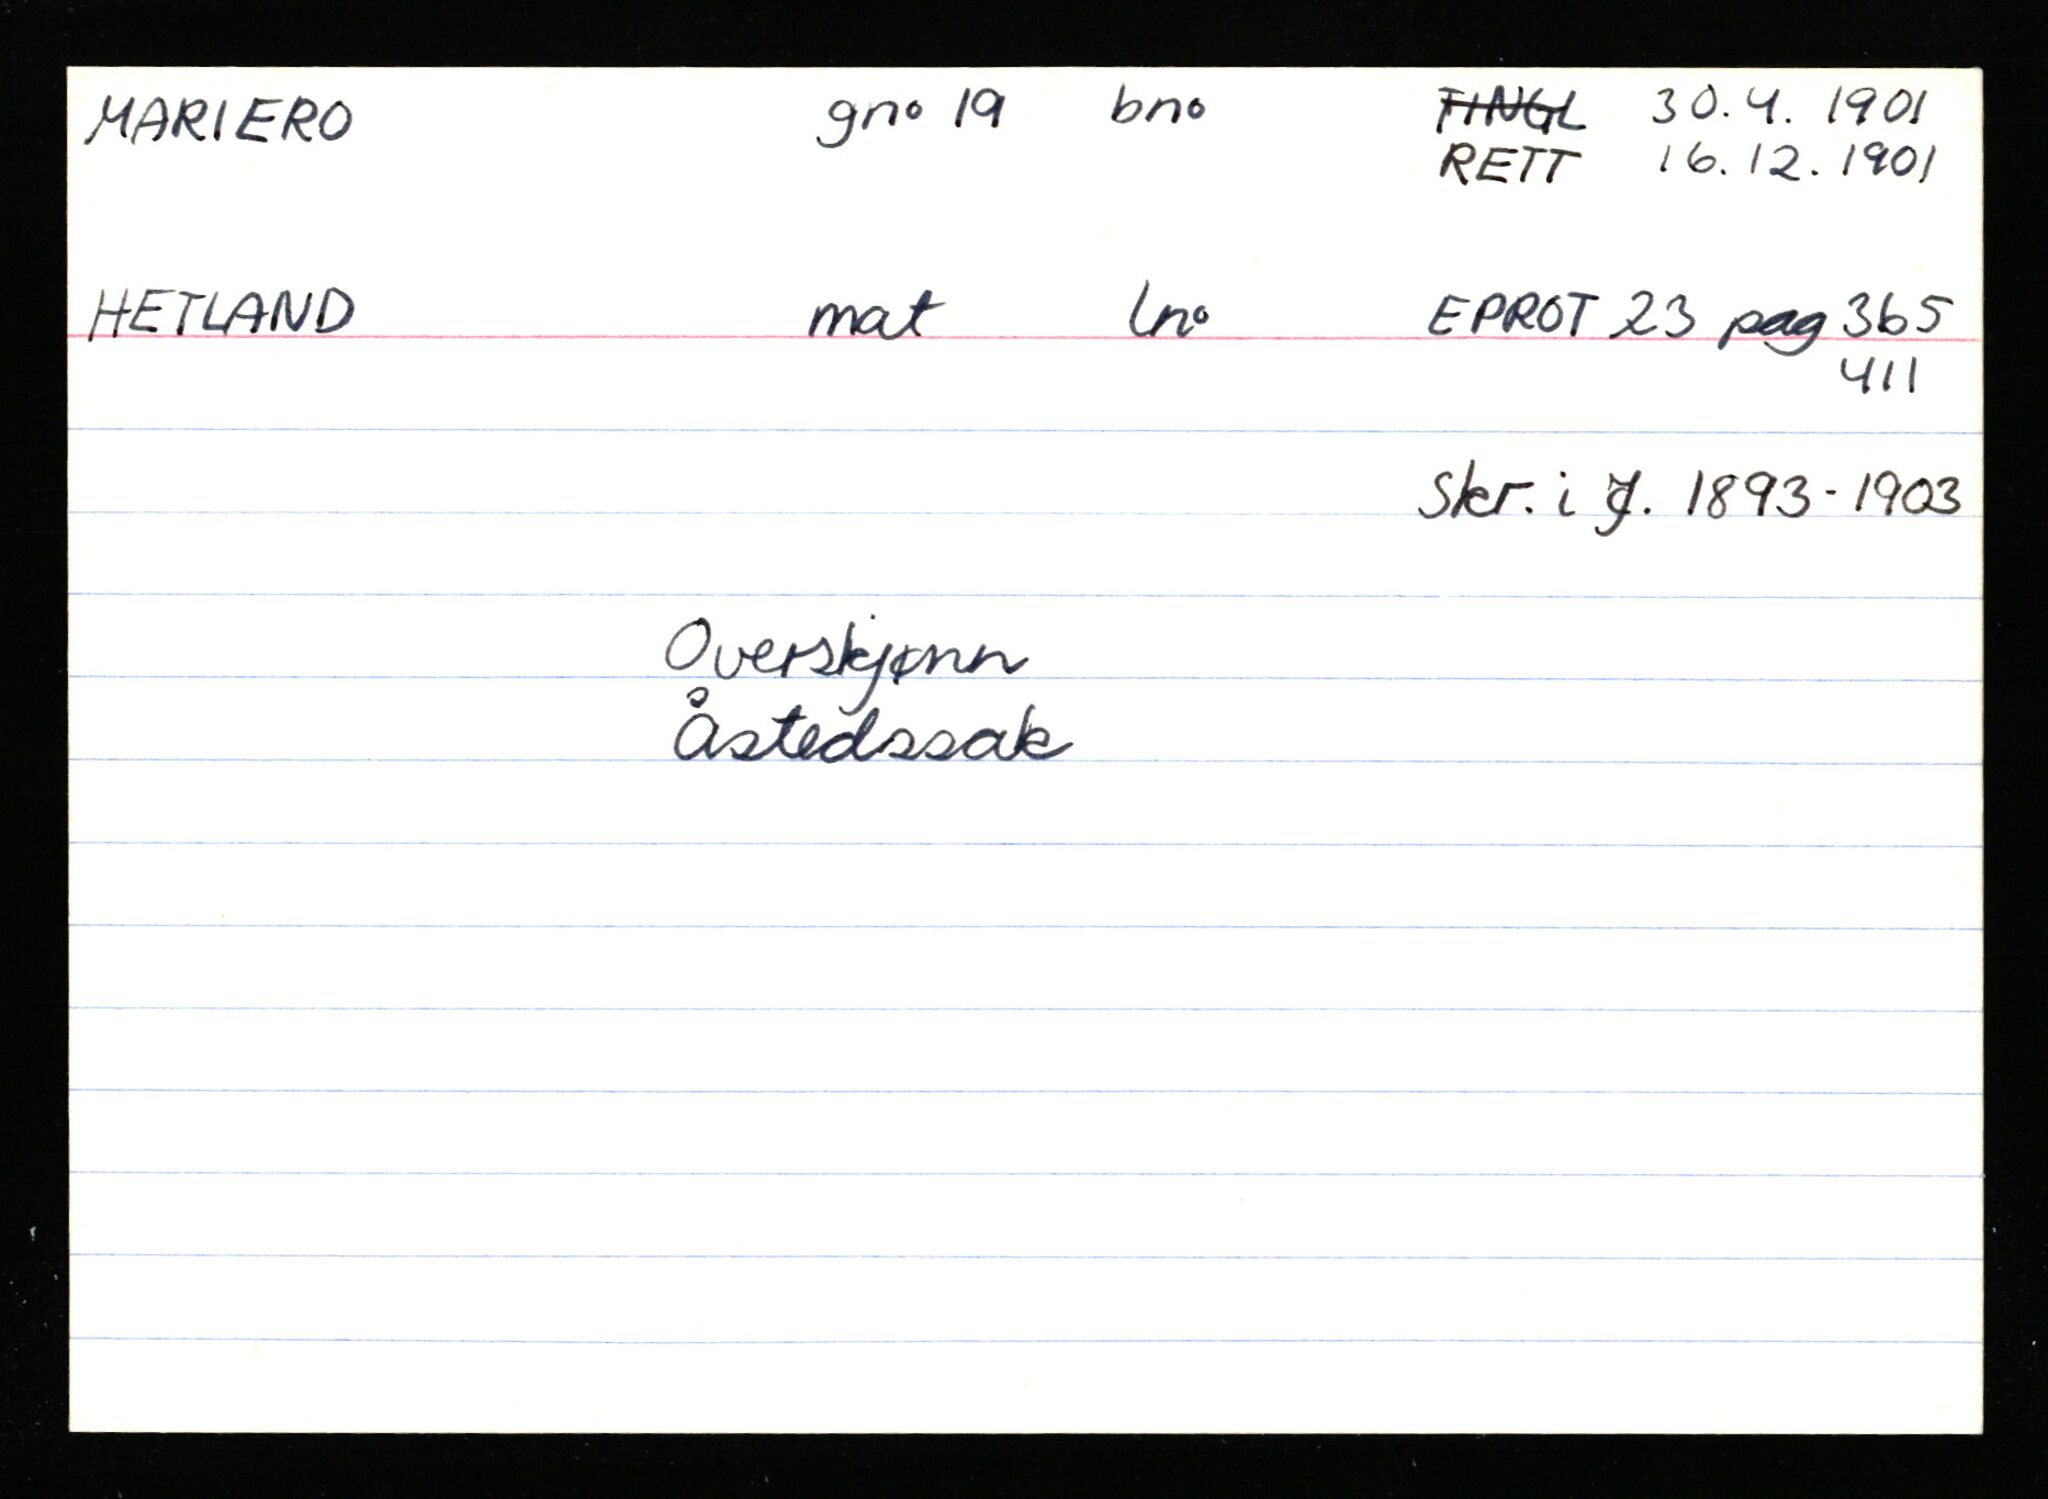 MARIERO gno 19 bno TINGL 30.4.1901
RETT 16.12.1901
HETLAND mat lno EPROT 23 pag 365
411
Skr. i J. 1893-1903
Overskjønn
Åstedssak